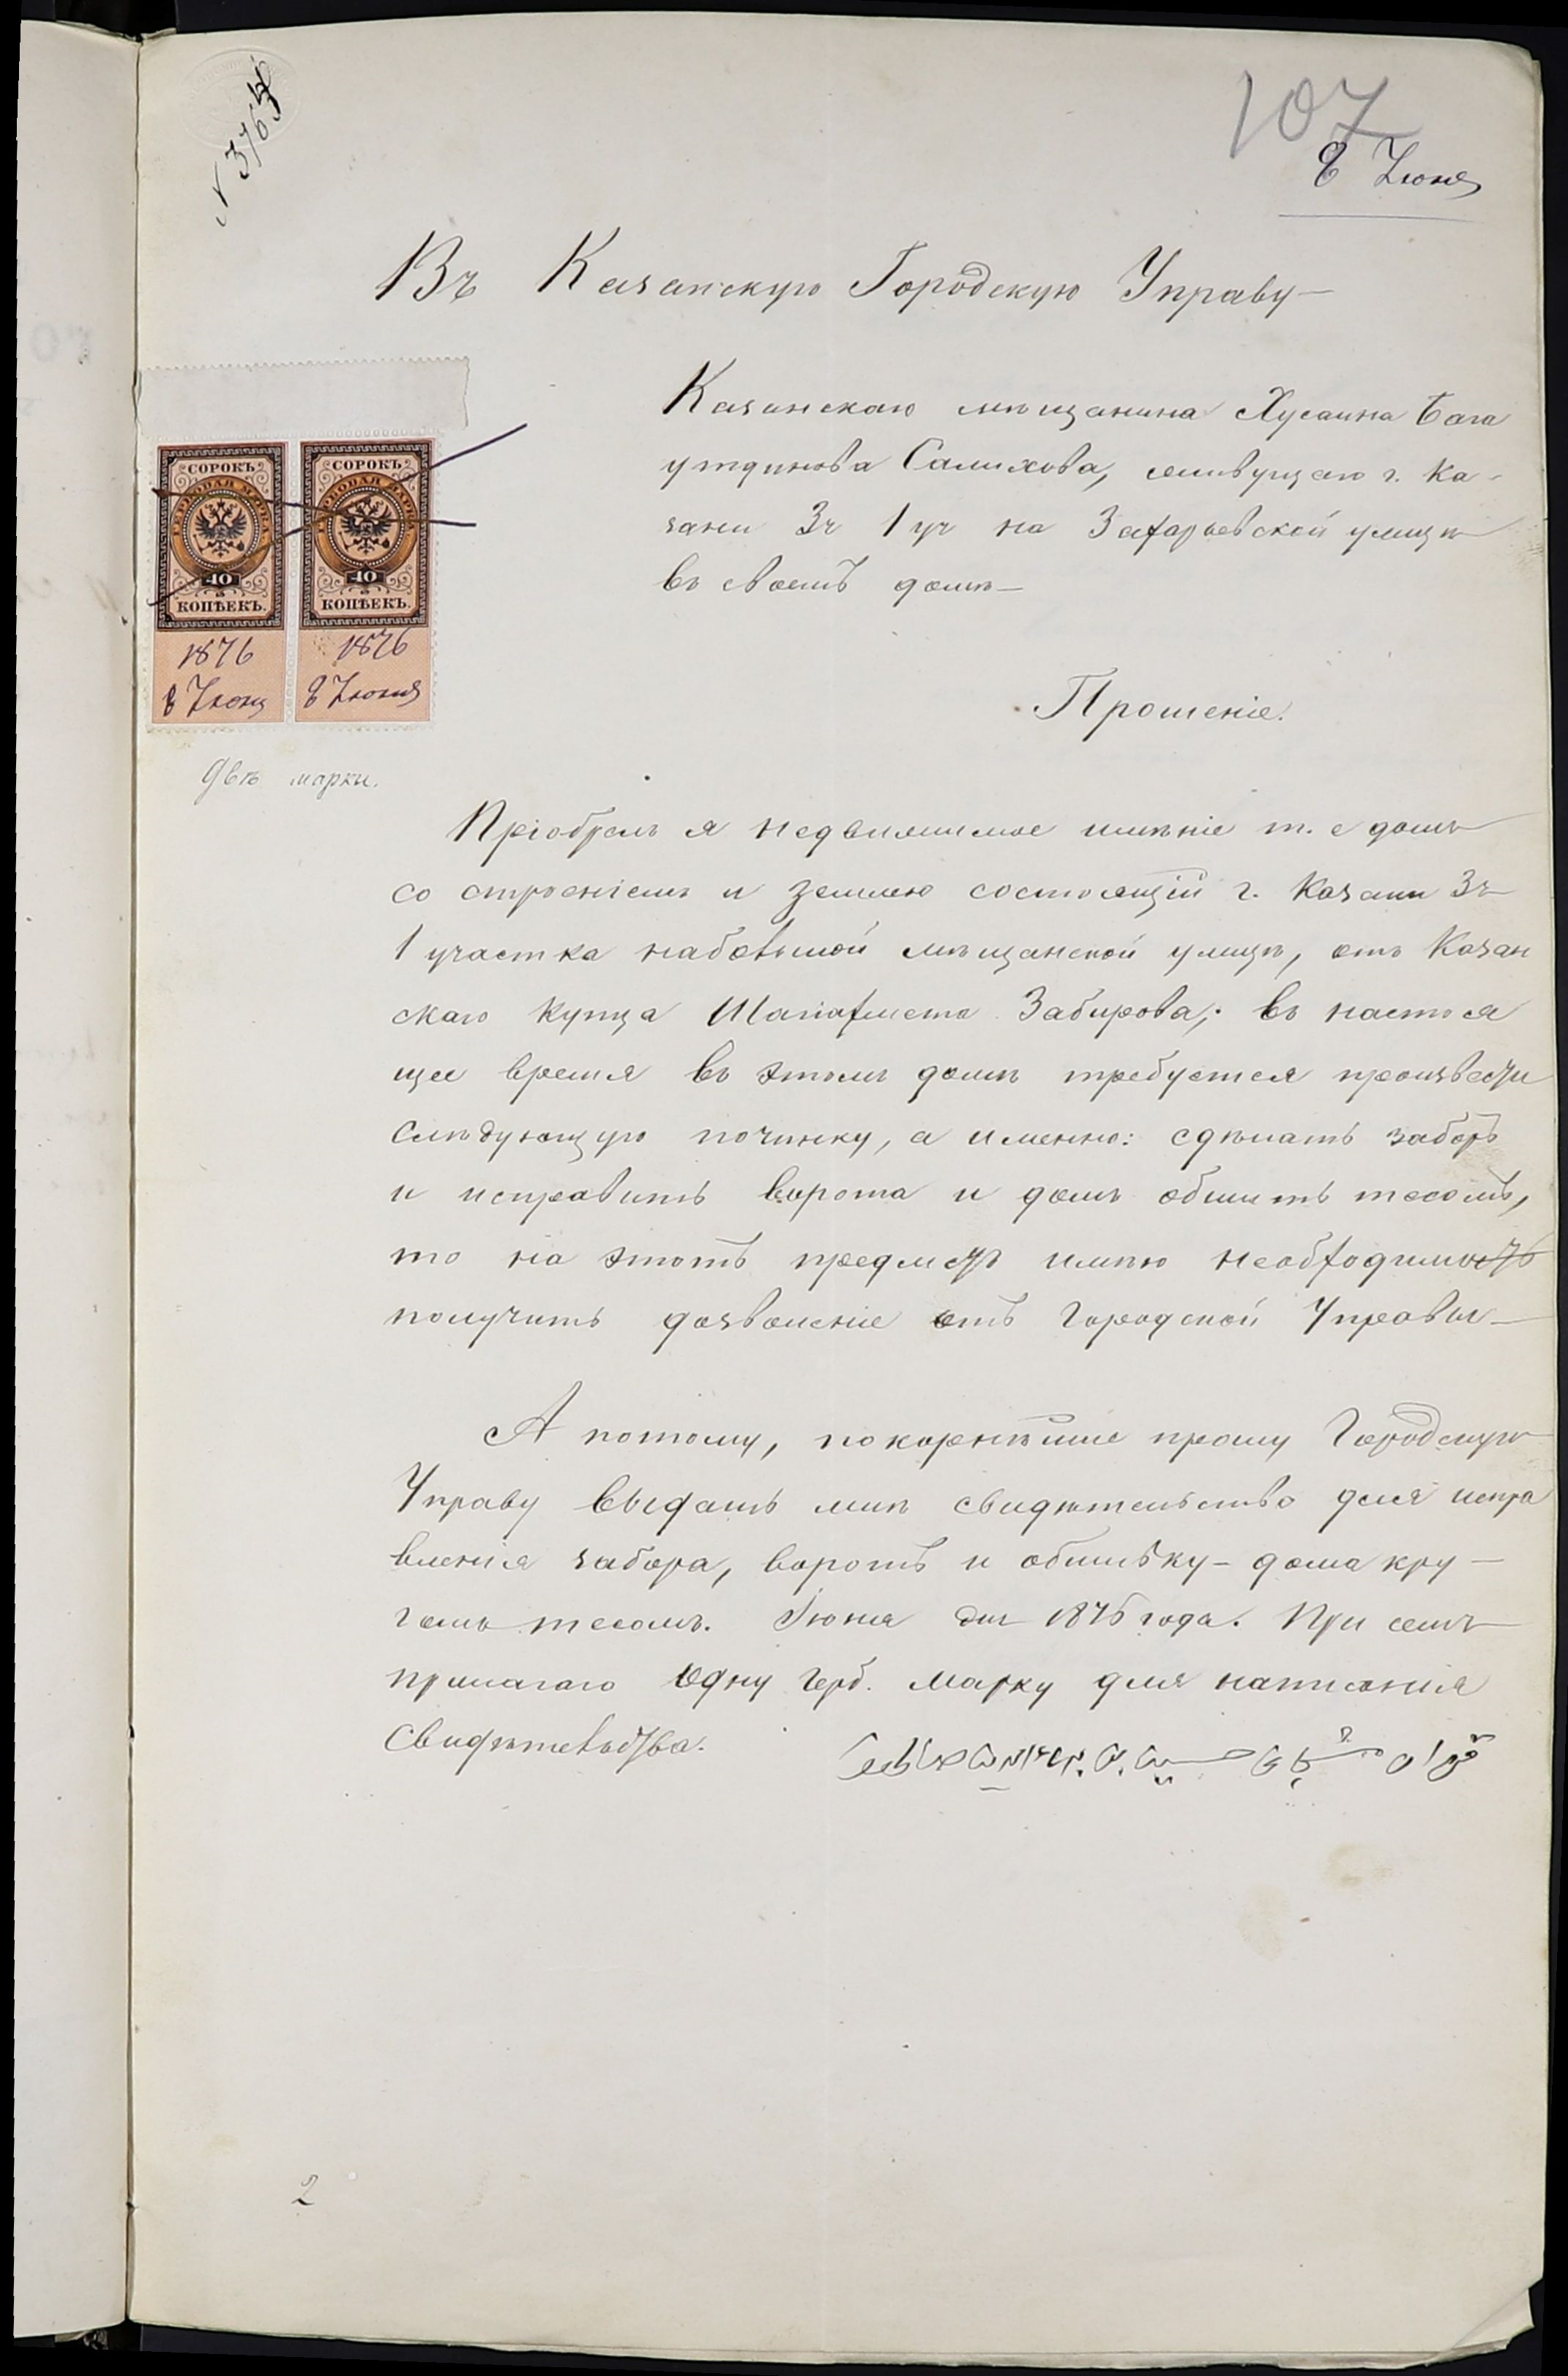 N 3765
107
8 Июня
Въ Казанскую Городскую Управу
Казанскаго мѣщанина Хусаина Бага
утдинова Салихова, живущаго г. Ка-
зани 3ч 1 уч на Захарьевской улицѣ
въ своемъ домѣ
СОРОКЪ СОРОКЪ
ГЕРБОВАЯ МАРКА ГЕРБОВАЯ МАРКА
40 40
КОПѢЕКЪ. КОПѢЕКЪ.
1876 1876
8 Июня 8 Июня
Двѣ марки.
Прошеніе.
Пріобрелъ я недвижимое имѣніе т. е домъ
со строеніемъ и землею состоящій г. Казани 3ч
1 участка набольшой мѣщанской улицѣ, отъ Казан
скаго купца Шагіахмета Забирова; въ настоя
щее время въ этомъ домѣ требуется произвести
слѣдующую починку, а именно: сдѣлать заборъ
и исправить ворота и домъ обшить тесомъ,
то на этотъ предметъ имѣю необходимость
получить дозволеніе отъ Городской Управы
А потому, покорнѣйше прошу Городскую
Управу выдать мнѣ свидѣтельство для испра
вленія забора, воротъ и обшивку - дома кру-
гомъ тесомъ. Іюня дня 1876 года. При семъ
прилагаю одну герб. марку для написанія
свидѣтельства.
2